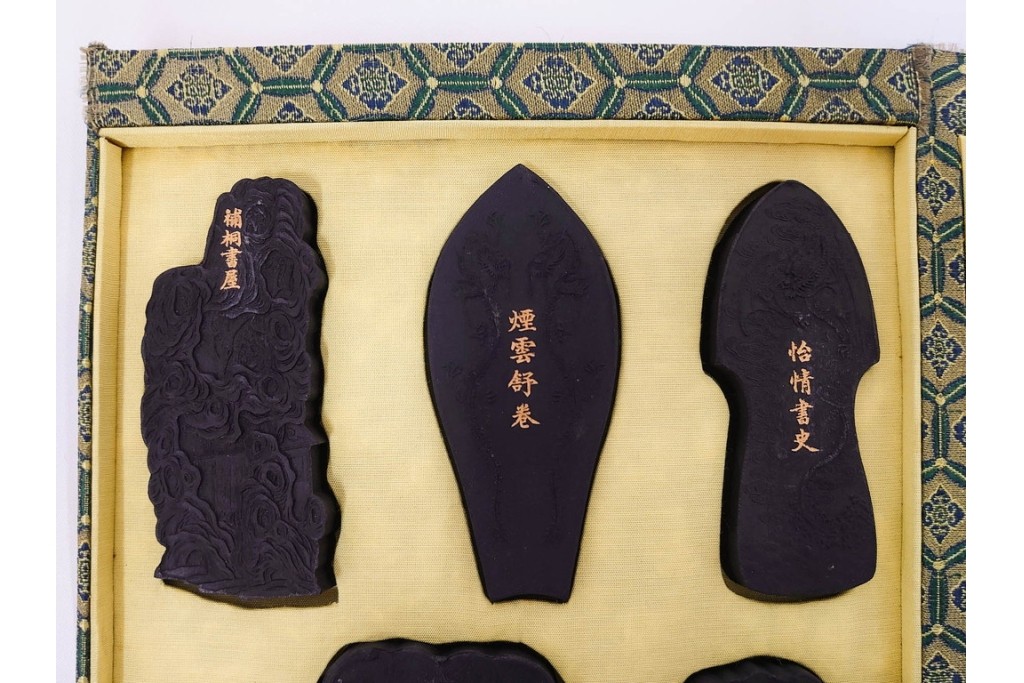 補桐書屋
煙雲舒卷
怡情書史